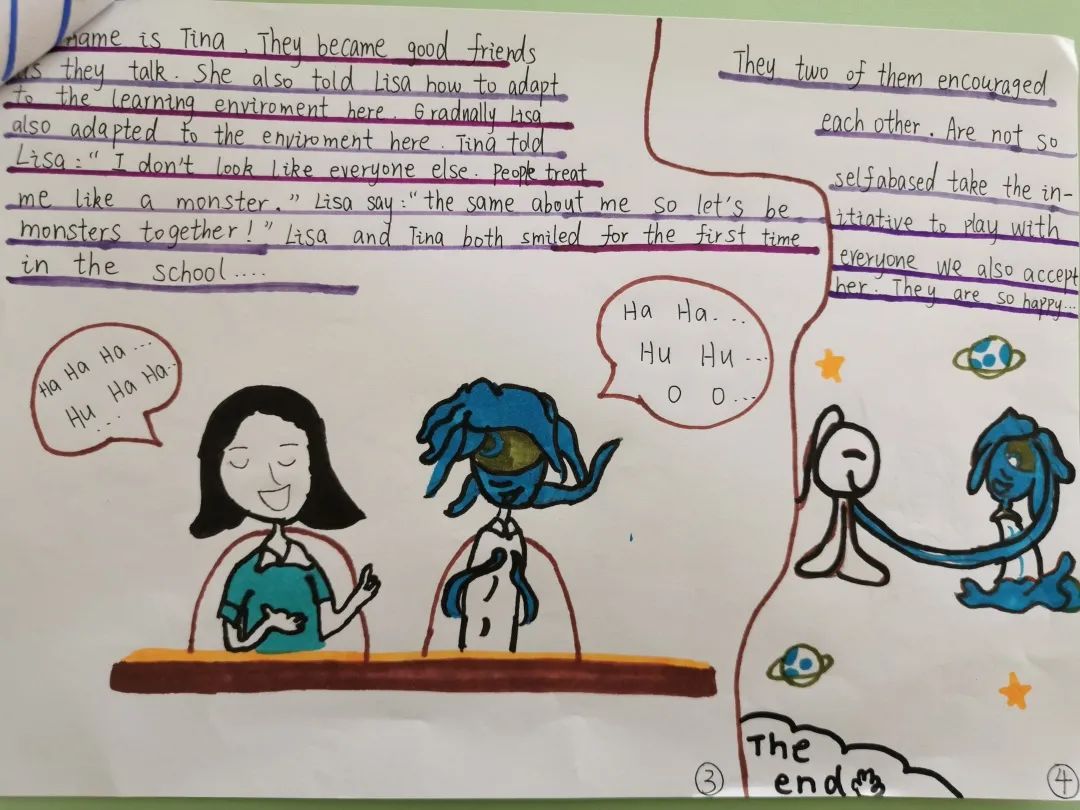 name is Tina. They became good friends
as they talk. She also told Lisa how to adapt
to the learning enviroment here. Gradnally Lisa
also adapted to the enviroment here. Tina told
Lisa:“ I don't look like everyone else. People treat
me like a monster.” Lisa say:“the same about me so let's be
monsters together!” Lisa and Tina both smiled for the first time
in the school....
Ha Ha Ha...
Hu Ha Ha..
...
Ha Ha...
Hu Hu...
O O...
③
They two of them encouraged
each other. Are not so
selfabased take the in-
itiative to play with
everyone we also accept
her. They are so happy...
The
end
④